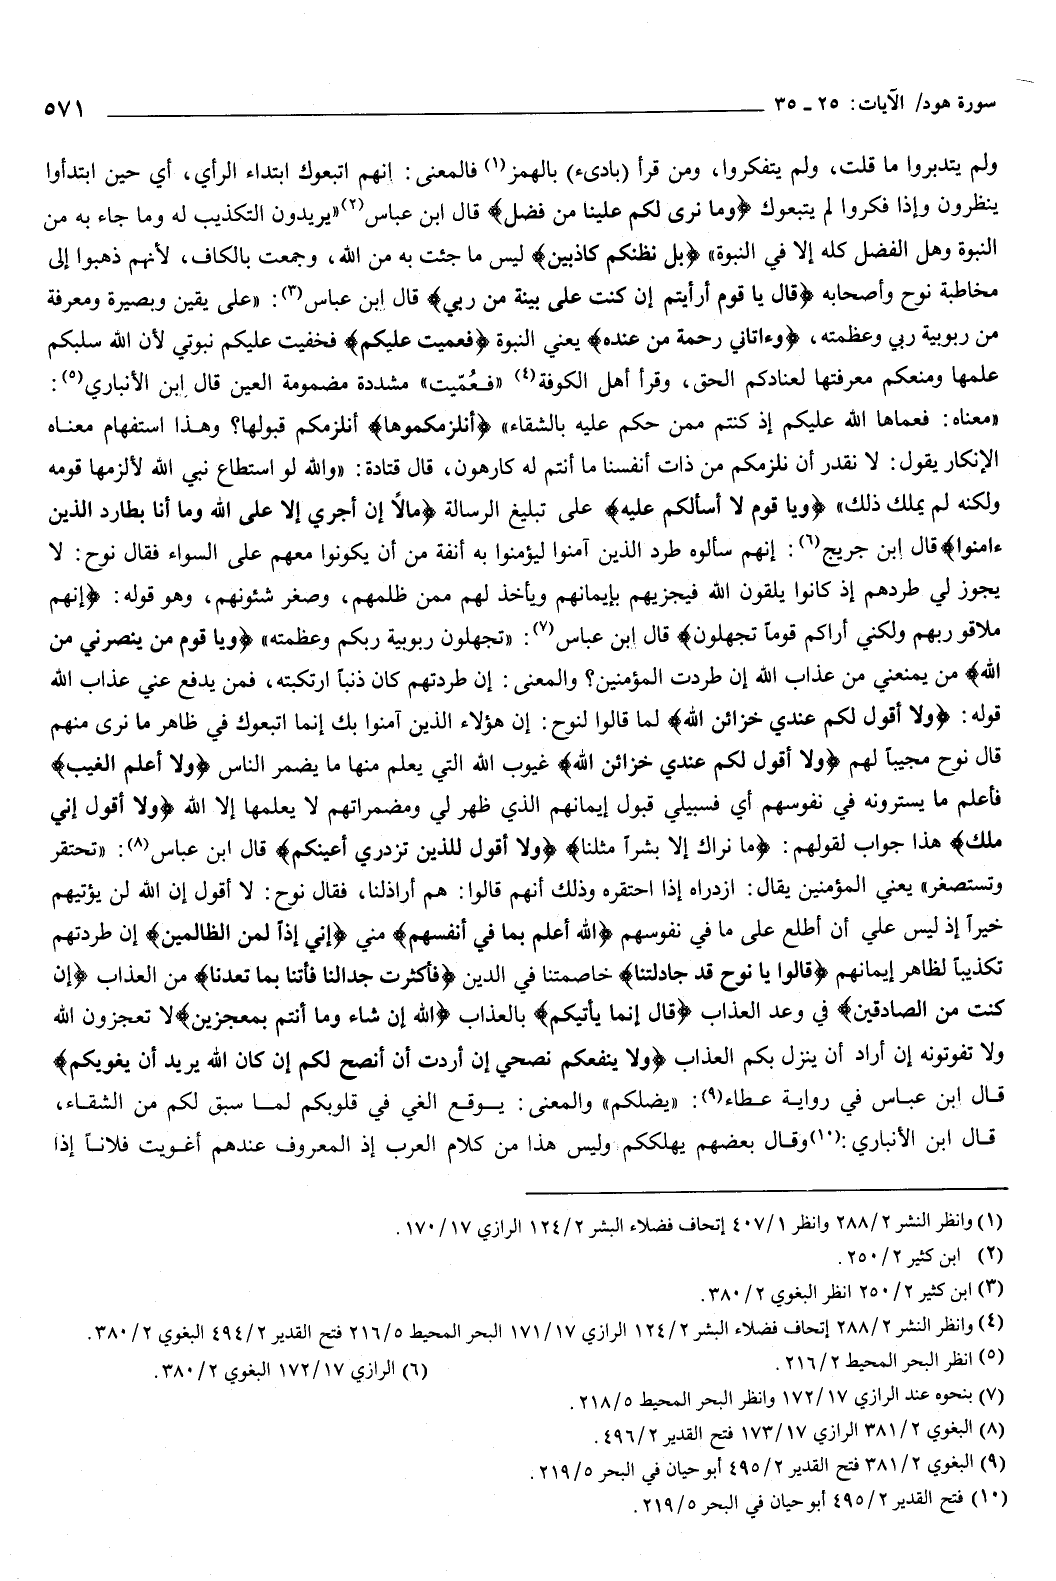 سورة هود/ الآيات: ٢٥ ـ ٣٥ ٥٧١
ولم يتدبروا ما قلت، ولم يتفكروا، ومن قرأ (بادىء) بالهمز(١) فالمعنى: إنهم اتبعوك ابتداء الرأي، أي حين ابتدأوا
ينظرون وإذا فكروا لم يتبعوك ﴿وما نرى لكم علينا من فضل﴾ قال ابن عباس(٢)«يريدون التكذيب له وما جاء به من
النبوة وهل الفضل كله إلا في النبوة» ﴿بل نظنكم كاذبين﴾ ليس ما جئت به من الله، وجمعت بالكاف، لأنهم ذهبوا إلى
مخاطبة نوح وأصحابه ﴿قال يا قوم أرأيتم إن كنت على بينة من ربي﴾ قال ابن عباس(٣): «على يقين وبصيرة ومعرفة
من ربوبية ربي وعظمته، ﴿وءاتاني رحمة من عنده﴾ يعني النبوة ﴿فعميت عليكم﴾ فخفيت عليكم نبوتي لأن الله سلبكم
علمها ومنعكم معرفتها لعنادكم الحق، وقرأ أهل الكوفة(٤) «فعُمّيت» مشددة مضمومة العين قال ابن الأنباري(٥):
«معناه: فعماها الله عليكم إذ كنتم ممن حكم عليه بالشقاء» ﴿أنلزمكموها﴾ أنلزمكم قبولها؟ وهذا استفهام معناه
الإنكار يقول: لا نقدر أن نلزمكم من ذات أنفسنا ما أنتم له كارهون، قال قتادة: «والله لو استطاع نبي الله لألزمها قومه
ولكنه لم يملك ذلك» ﴿ويا قوم لا أسألكم عليه﴾ على تبليغ الرسالة ﴿مالًا إن أجري إلا على الله وما أنا بطارد الذين
ءامنوا﴾ قال ابن جريج(٦): إنهم سألوه طرد الذين آمنوا ليؤمنوا به أنفة من أن يكونوا معهم على السواء فقال نوح: لا
يجوز لي طردهم إذ كانوا يلقون الله فيجزيهم بإيمانهم ويأخذ لهم ممن ظلمهم، وصغر شئونهم، وهو قوله: ﴿إنهم
ملاقو ربهم ولكني أراكم قوماً تجهلون﴾ قال ابن عباس(٧): «تجهلون ربوبية ربكم وعظمته» ﴿ويا قوم من ينصرني من
الله﴾ من يمنعني من عذاب الله إن طردت المؤمنين؟ والمعنى: إن طردتهم كان ذنباً ارتكبته، فمن يدفع عني عذاب الله
قوله: ﴿ولا أقول لكم عندي خزائن الله﴾ لما قالوا لنوح: إن هؤلاء الذين آمنوا بك إنما اتبعوك في ظاهر ما نرى منهم
قال نوح مجيباً لهم ﴿ولا أقول لكم عندي خزائن الله﴾ غيوب الله التي يعلم منها ما يضمر الناس ﴿ولا أعلم الغيب﴾
فأعلم ما يسترونه في نفوسهم أي فسبيلي قبول إيمانهم الذي ظهر لي ومضمراتهم لا يعلمها إلا الله ﴿ولا أقول إني
ملك﴾ هذا جواب لقولهم: ﴿ما نراك إلا بشراً مثلنا﴾ ﴿ولا أقول للذين تزدري أعينكم﴾ قال ابن عباس(٨): «تحتقر
وتستصغر» يعني المؤمنين يقال: ازدراه إذا احتقره وذلك أنهم قالوا: هم أراذلنا، فقال نوح: لا أقول إن الله لن يؤتيهم
خيراً إذ ليس علي أن أطلع على ما في نفوسهم ﴿الله أعلم بما في أنفسهم﴾ مني ﴿إني إذاً لمن الظالمين﴾ إن طردتهم
تكذيباً لظاهر إيمانهم ﴿قالوا يا نوح قد جادلتنا﴾ خاصمتنا في الدين ﴿فأكثرت جدالنا فأتنا بما تعدنا﴾ من العذاب ﴿إن
كنت من الصادقين﴾ في وعد العذاب ﴿قال إنما يأتيكم﴾ بالعذاب ﴿الله إن شاء وما أنتم بمعجزين﴾لا تعجزون الله
ولا تفوتونه إن أراد أن ينزل بكم العذاب ﴿ولا ينفعكم نصحي إن أردت أن أنصح لكم إن كان الله يريد أن يغويكم﴾
قال ابن عباس في رواية عطاء(٩): «يضلكم» والمعنى: يوقع الغي في قلوبكم لما سبق لكم من الشقاء،
قال ابن الأنباري:(١٠)وقال بعضهم يهلككم وليس هذا من كلام العرب إذ المعروف عندهم أغويت فلاناً إذا
(١) وانظر النشر ٢/ ٢٨٨ وانظر ١/ ٤٠٧ إتحاف فضلاء البشر ٢/ ١٢٤ الرازي ١٧/ ١٧٠.
(٢) ابن كثير ٢/ ٢٥٠.
(٣) ابن كثير ٢/ ٢٥٠ انظر البغوي ٢/ ٣٨٠.
(٤) وانظر النشر ٢/ ٢٨٨ إتحاف فضلاء البشر ٢/ ١٢٤ الرازي ١٧/ ١٧١ البحر المحيط ٥/ ٢١٦ فتح القدير ٢/ ٤٩٤ البغوي ٢/ ٣٨٠.
(٥) انظر البحر المحيط ٢/ ٢١٦. (٦) الرازي ١٧/ ١٧٢ البغوي ٢/ ٣٨٠.
(٧) بنحوه عند الرازي ١٧/ ١٧٢ وانظر البحر المحيط ٥/ ٢١٨.
(٨) البغوي ٢/ ٣٨١ الرازي ١٧/ ١٧٣ فتح القدير ٢/ ٤٩٦.
(٩) البغوي ٢/ ٣٨١ فتح القدير ٢/ ٤٩٥ أبو حيان في البحر ٥/ ٢١٩.
(١٠) فتح القدير ٢/ ٤٩٥ أبو حيان في البحر ٥/ ٢١٩.